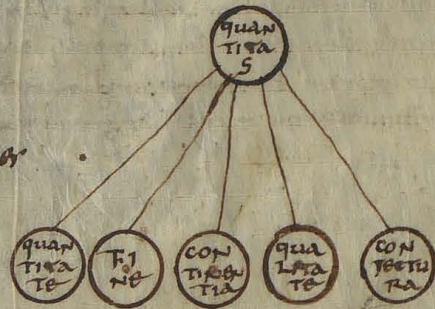 QUAN
TITA
S
QUAN
TITA
TE
FI
NE
CON
TINEN
TIA
QUA
LITA
TE
CON
IECTU
RA